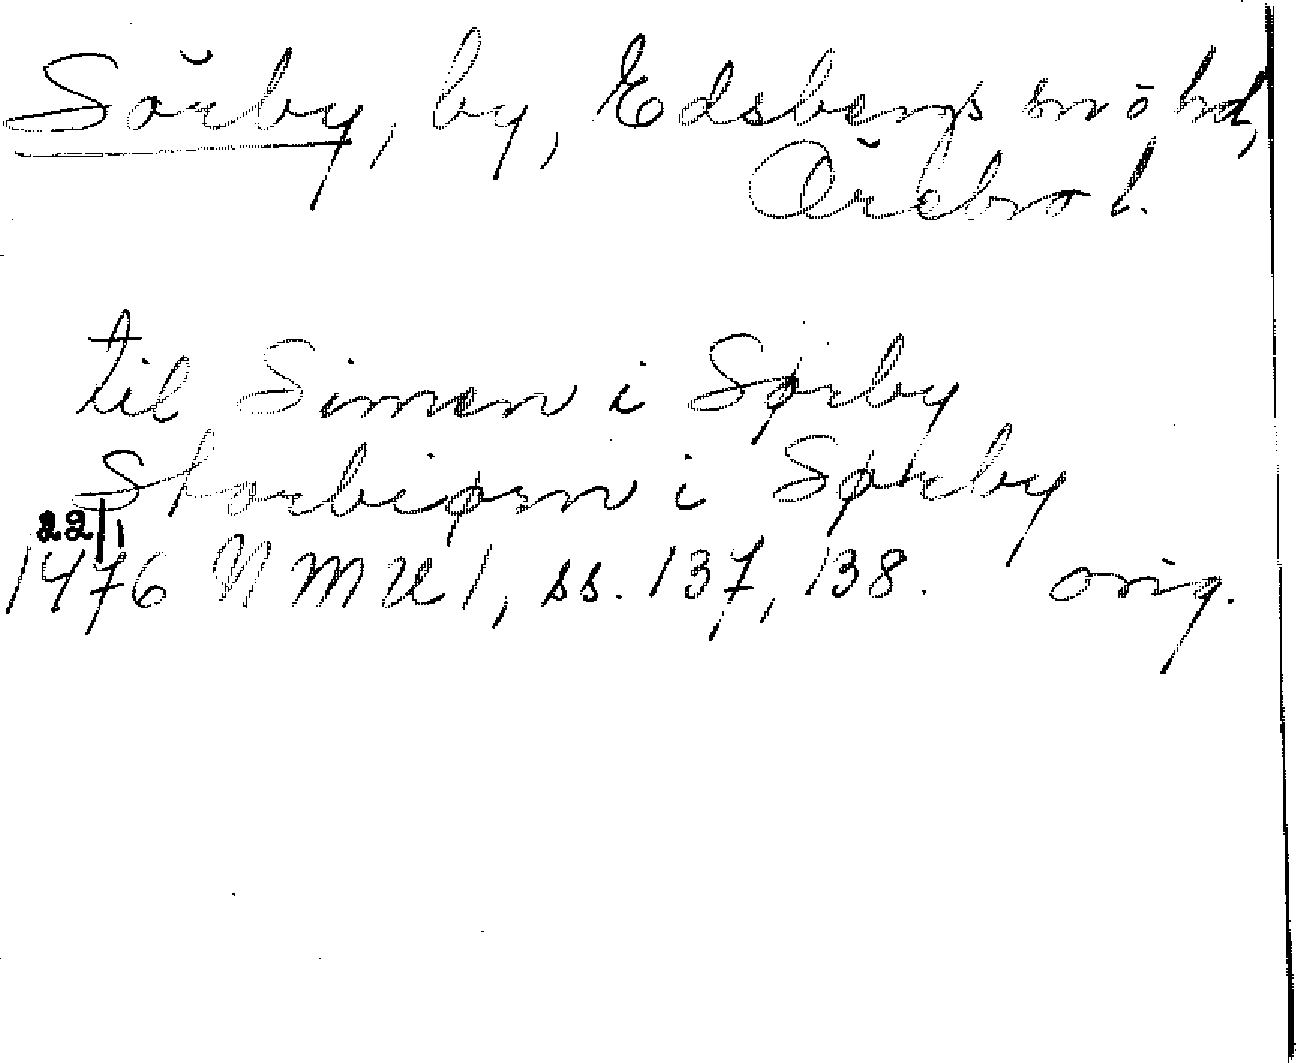 Sörby, by, Edsbergs sn o hd,
Örebro l.
til Simen i Sørby
Storbiørn i Sørby
22/1
1476 NMU 1, ss. 137, 138. orig.